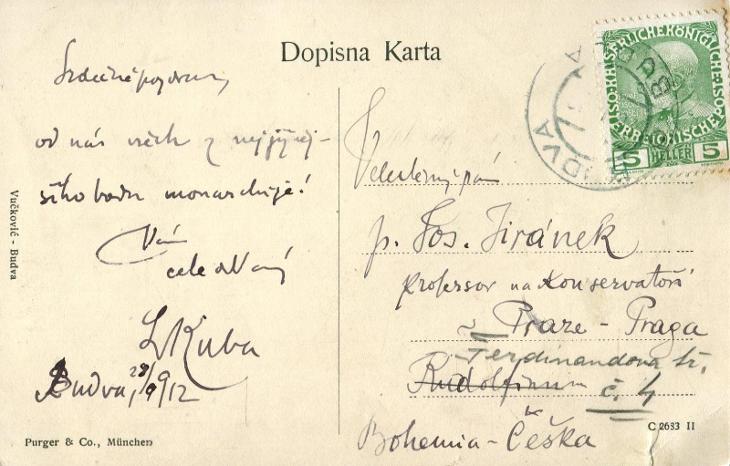 Dopisna Karta
Srdečné pozdravy
od nás všech z nejjižněj-
šího bodu monarchije!
Vám
cele oddaný
LKuba
Budva, 28/9 912
Vučković - Budva
Purger & Co., München
KAISERLICHE KÖNIGLICHE
ÖSTERREICHISCHE
5 HELLER 5
BUDVA
Velectěný pán
p. Jos. Jiránek
Professor na Konservatoři
v Praze - Praga
Ferdinandova tř.
Rudolfinum č. 4
Bohemia - Češka
C 2633 II